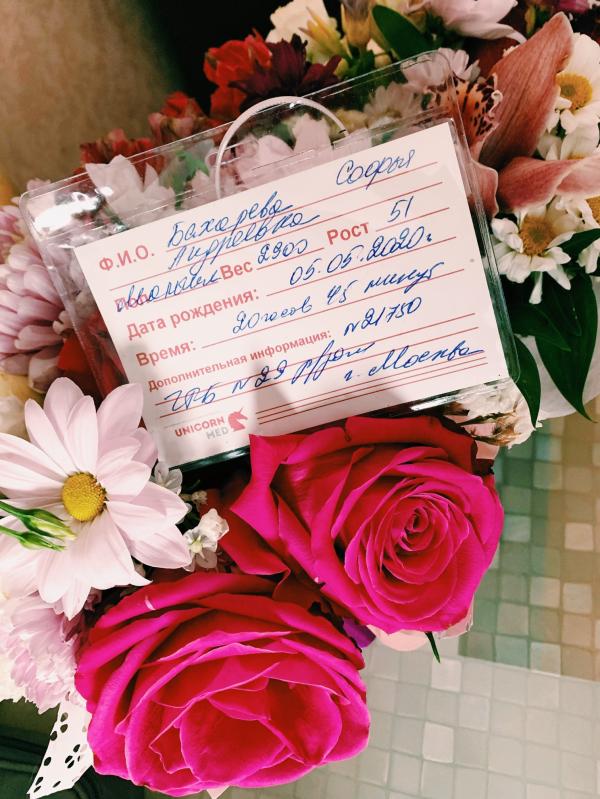 Ф.И.О. Бахарева София
Андреевна
девочка Вес 2900 Рост 51
Дата рождения: 05.05.2020г
Время: 20 часов 45 минут
Дополнительная информация: №21750
ГКБ №29 р/дом г. Москва
UNICORN
MED